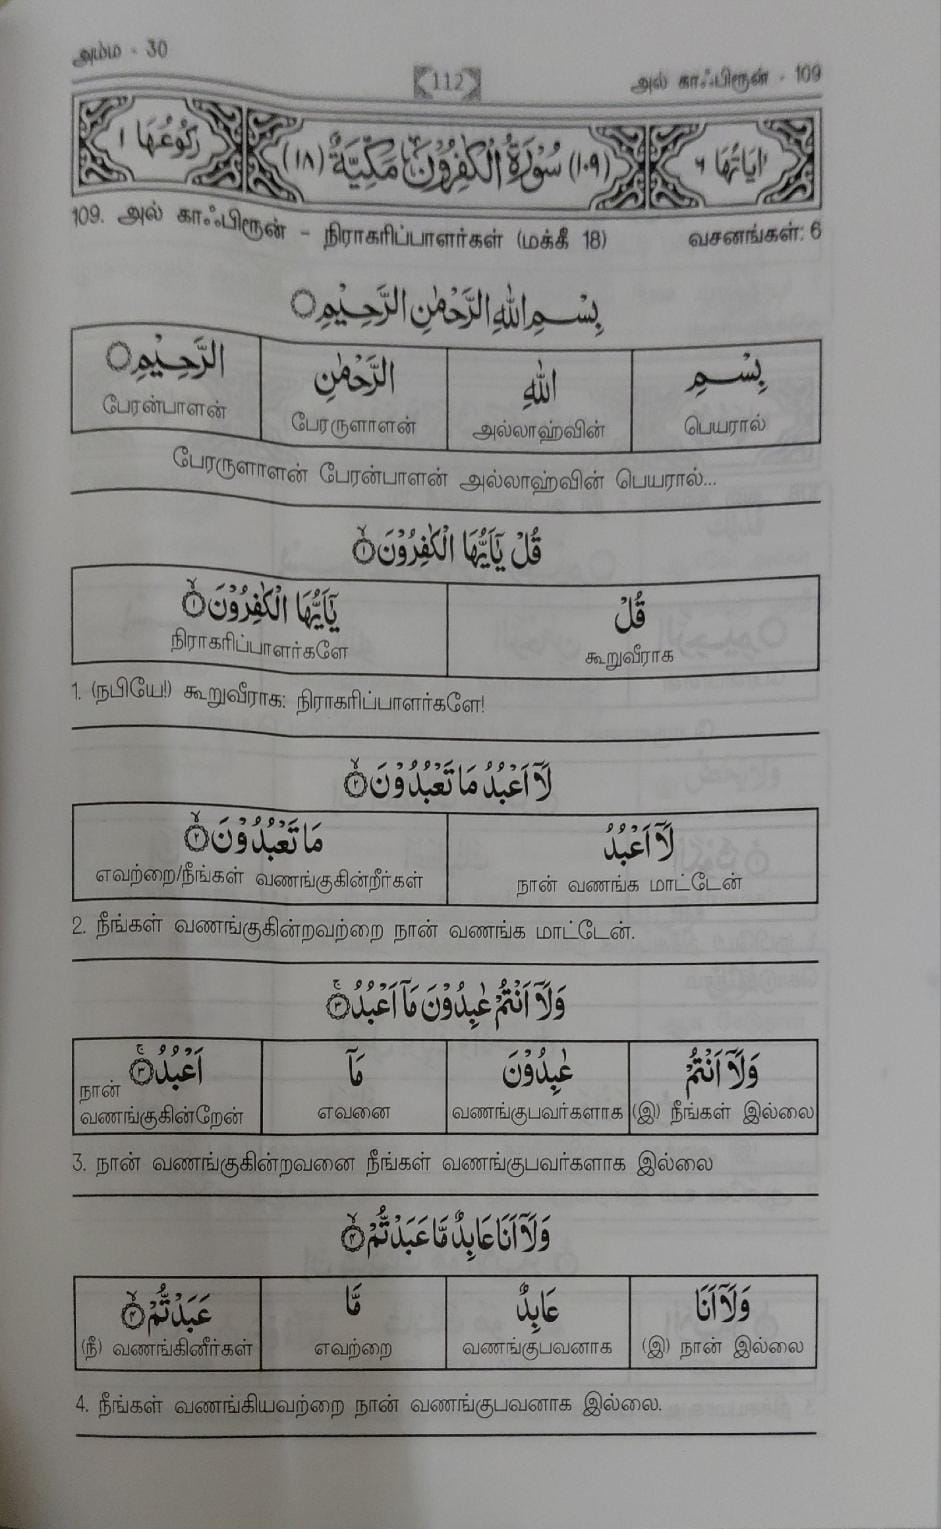 அம்ம - 30
112
அல் காஃபிரூன் - 109
اٰيَاتُهَا ٦
(١٠٩) سُوْرَةُ الْكٰفِرُوْنَ مَكِّيَّةٌ (١٨)
رَكُوْعُهَا ١
109. அல் காஃபிரூன் - நிராகரிப்பாளர்கள் (மக்கீ 18) வசனங்கள்: 6
بِسْمِ اللّٰهِ الرَّحْمٰنِ الرَّحِيْمِ ۝
بِسْمِ اللّٰهِ الرَّحْمٰنِ الرَّحِيْمِ ۝
பேரன்பாளன் பேரருளாளன் அல்லாஹ்வின் பெயரால்
பேரருளாளன் பேரன்பாளன் அல்லாஹ்வின் பெயரால்...
قُلْ يٰٓاَيُّهَا الْكٰفِرُوْنَ ۙ‏١
قُلْ يٰٓاَيُّهَا الْكٰفِرُوْنَ ۙ‏١
நிராகரிப்பாளர்களே கூறுவீராக
1. (நபியே!) கூறுவீராக: நிராகரிப்பாளர்களே!
لَاۤ اَعْبُدُ مَا تَعْبُدُوْنَ ۙ‏٢
لَاۤ اَعْبُدُ مَا تَعْبُدُوْنَ ۙ‏٢
எவற்றை/நீங்கள் வணங்குகின்றீர்கள் நான் வணங்க மாட்டேன்
2. நீங்கள் வணங்குகின்றவற்றை நான் வணங்க மாட்டேன்.
وَلَاۤ اَنْتُمْ عٰبِدُوْنَ مَاۤ اَعْبُدُ ۚ‏٣
وَلَاۤ اَنْتُمْ عٰبِدُوْنَ مَاۤ اَعْبُدُ ۚ‏٣
நான்
வணங்குகின்றேன் எவனை வணங்குபவர்களாக (இ) நீங்கள் இல்லை
3. நான் வணங்குகின்றவனை நீங்கள் வணங்குபவர்களாக இல்லை
وَلَاۤ اَنَا عَابِدٌ مَّا عَبَدْتُّمْ ۙ‏٤
وَلَاۤ اَنَا عَابِدٌ مَّا عَبَدْتُّمْ ۙ‏٤
(நீ) வணங்கினீர்கள் எவற்றை வணங்குபவனாக (இ) நான் இல்லை
4. நீங்கள் வணங்கியவற்றை நான் வணங்குபவனாக இல்லை.